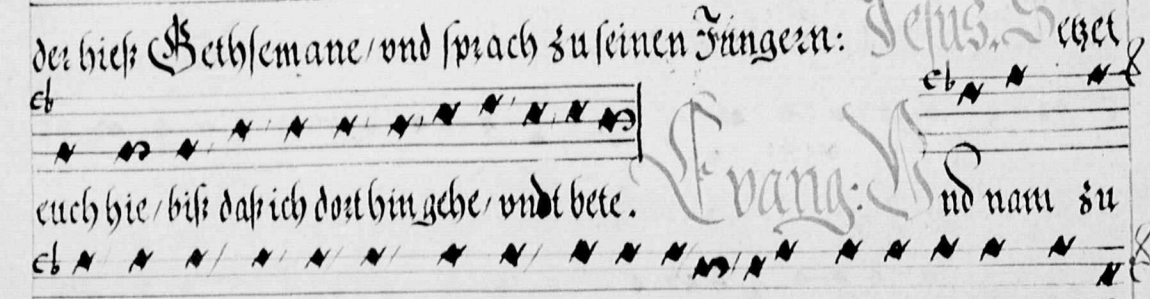 der hieß Gethsemane / vnd sprach zu seinen Jüngern: Jesus. Setzet
euch hie / biß daß ich dort hin gehe / vndt bete. Evang: Vnd nam zu